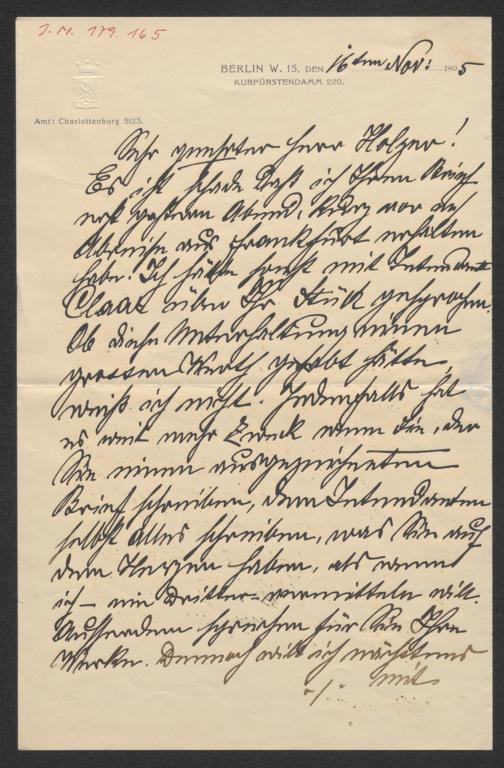 I.N. 179.165
BERLIN W. 15, DEN 16ten Nov: 1905
KURFÜRSTENDAMM 220.
Amt: Charlottenburg 3123.
Sehr geehrter Herr Holzer!
Es ist schade daß ich Ihren Brief
erst gestern Abend, kurz vor der
Abreise aus Frankfurt erhalten
habe. Ich hätte sonst mit Intendant
Claar über Ihr Stück gesprochen.
Ob diese Unterhaltung einen
grossen Werth gehabt hätte,
weiß ich nicht. Jedenfalls hat
es weit mehr Zweck wenn Sie, der
Sie einen ausgezeichneten
Brief schreiben, dem Intendanten
selbst alles schreiben, was Sie auf
dem Herzen haben, als wenn
ich – ein Dritter – vermitteln will.
Ausserdem sprechen für Sie Ihre
Werke. Dennoch will ich nächstens
-/. mit